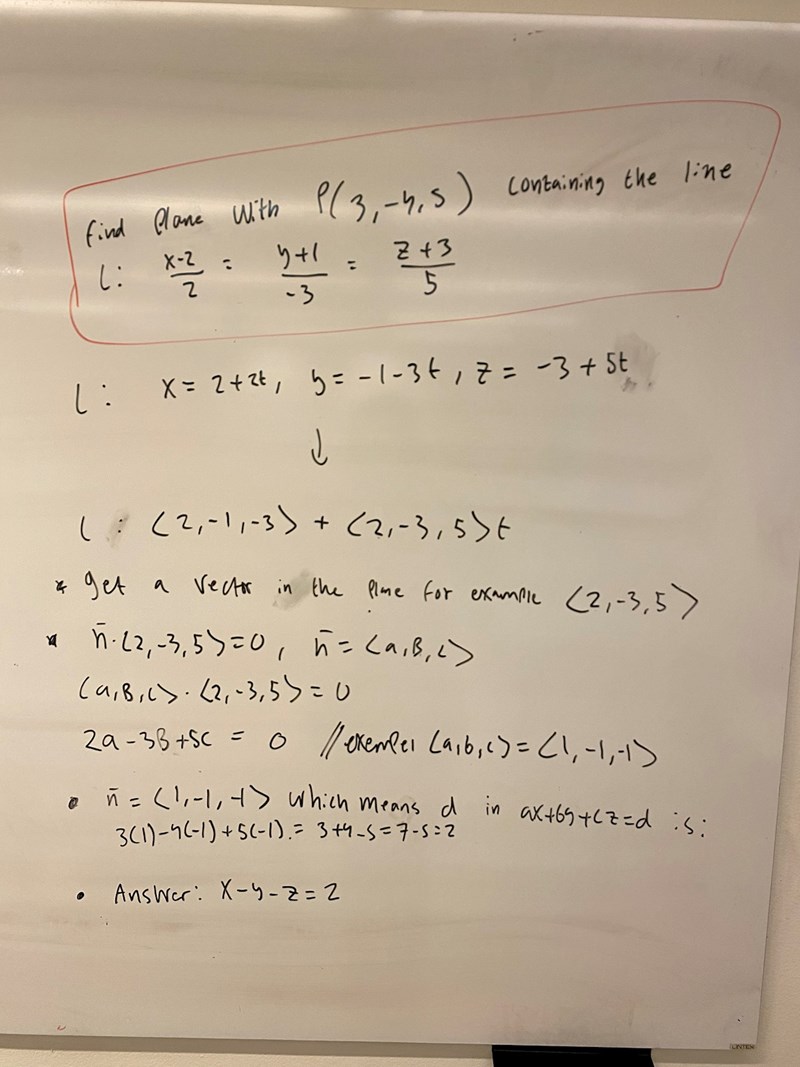 find plane with P(3,-4,5) containing the line
l: x-2/2 = y+1/-3 = z+3/5
l: x = 2+2t, y = -1-3t, z = -3+5t
↓
l: <2,-1,-3> + <2,-3,5>t
* get a vector in the plane for example <2,-3,5>
* n̄·<2,-3,5>=0, n̄ = <a,B,c>
<a,B,c>·<2,-3,5>=0
2a-3B+5c = 0 //exempel <a,b,c>=<1,-1,-1>
• n̄ = <1,-1,-1> which means d in ax+by+cz=d is:
3(1)-4(-1)+5(-1).= 3+4-5=7-5=2
• Answer: x-y-z=2